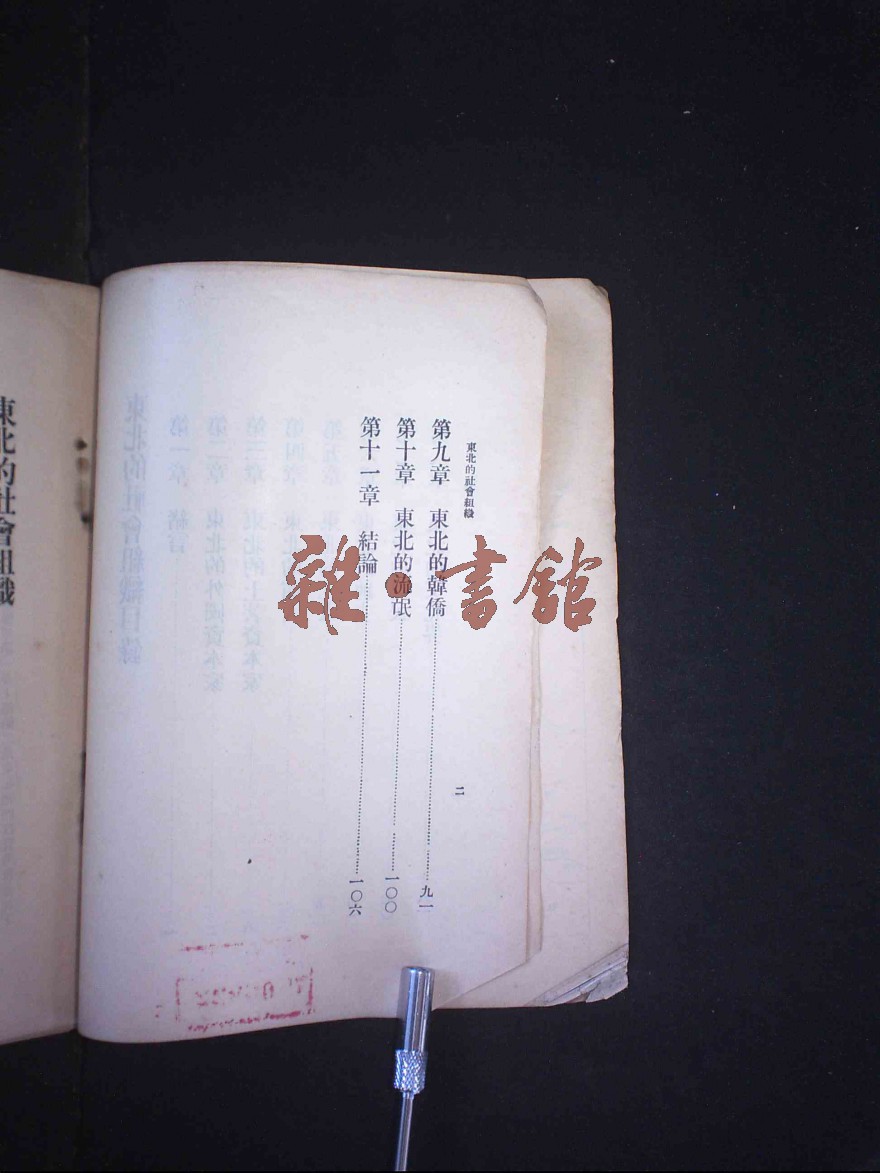 東北的社會組織
二
第九章 東北的韓僑 九一
第十章 東北的流氓 一〇〇
第十一章 結論 一〇六
東北的社會組織
雜·書館